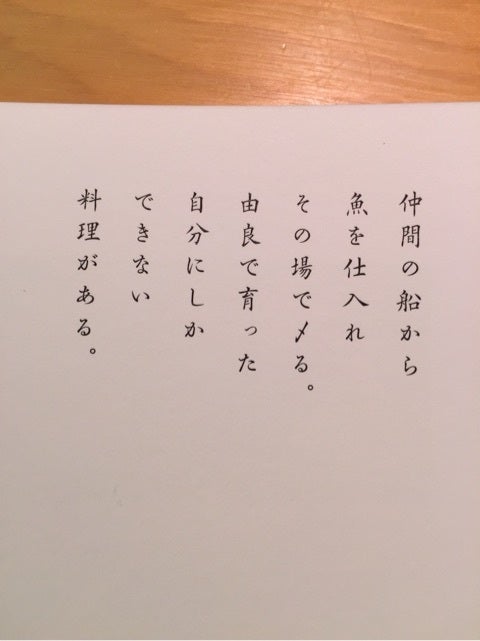 仲間の船から
魚を仕入れ
その場で〆る。
由良で育った
自分にしか
できない
料理がある。